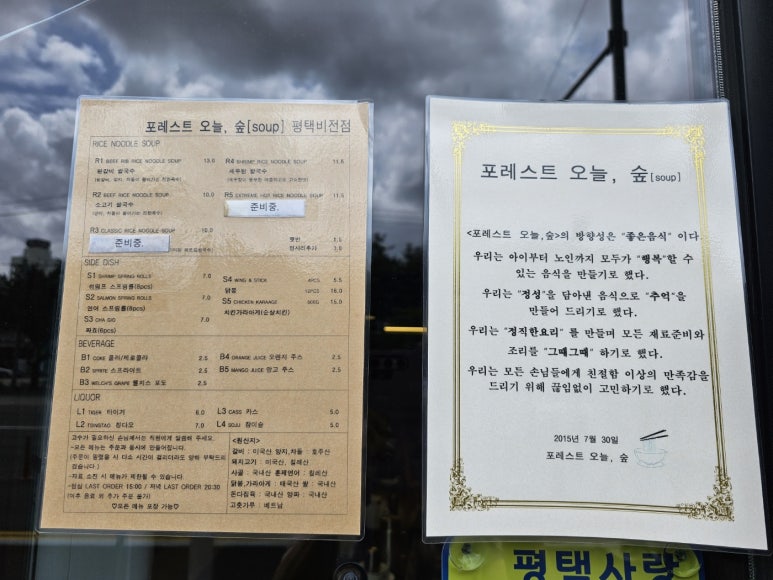 포레스트 오늘, 숲[soup] 평택비전점
RICE NOODLE SOUP
R1 BEEF RIB RICE NOODLE SOUP 13.0
왕갈비 쌀국수
R2 BEEF RICE NOODLE SOUP 10.0
소고기 쌀국수
R3 CLASSIC RICE NOODLE SOUP 10.0
준비중.
R4 SHRIMP RICE NOODLE SOUP 11.5
새우탕 쌀국수
R5 EXTREME HOT RICE NOODLE SOUP 11.5
준비중.
면사리추가
SIDE DISH
S1 SHRIMP SPRING ROLLS 7.0
쉬림프 스프링롤(8pcs)
S2 SALMON SPRING ROLLS 7.0
연어 스프링롤(8pcs)
S3 CHA GIO 7.0
짜죠(6pcs)
S4 WING & STICK 4PCS 5.5
닭봉 12PCS 16.0
S5 CHICKEN KARAAGE 500G 15.0
치킨가라아게(순살치킨)
BEVERAGE
B1 COKE 콜라/제로콜라 2.5
B2 SPRITE 스프라이트 2.5
B3 WELCH'S GRAPE 웰치스 포도 2.5
B4 ORANGE JUICE 오렌지 주스 2.5
B5 MANGO JUICE 망고 주스 2.5
LIQUOR
L1 TIGER 타이거 6.0
L2 TSINGTAO 칭다오 7.0
L3 CASS 카스 5.0
L4 SOJU 참이슬 5.0
고수가 필요하신 손님께서는 직원에게 말씀해 주세요.
-모든 메뉴는 주문과 동시에 만들어집니다.
(주문이 몰렸을 시 다소 시간이 걸리더라도 양해 부탁드리
겠습니다.)
-재료 소진 시 메뉴가 제한될 수 있습니다
-점심 LAST ORDER 15:00 / 저녁 LAST ORDER 20:30
(이후 음료 외 추가 주문 불가)
♡모든 메뉴 포장 가능♡
<원산지>
갈비 : 미국산 양지,차돌 : 호주산
돼지고기 : 미국산, 칠레산
사골 : 국내산 훈제연어 : 칠레산
닭봉,가라아게 : 태국산 쌀 : 국내산
돈다짐육 : 국내산 양파 : 국내산
고춧가루 : 베트남
포레스트 오늘, 숲[soup]
<포레스트 오늘,숲>의 방향성은 "좋은음식" 이다
우리는 아이부터 노인까지 모두가 "행복"할 수
있는 음식을 만들기로 했다.
우리는 "정성"을 담아낸 음식으로 "추억"을
만들어 드리기로 했다.
우리는 "정직한요리" 를 만들며 모든 재료준비와
조리를 "그때그때" 하기로 했다.
우리는 모든 손님들에게 친절함 이상의 만족감을
드리기 위해 끊임없이 고민하기로 했다.
2015년 7월 30일
포레스트 오늘, 숲
평택사랑